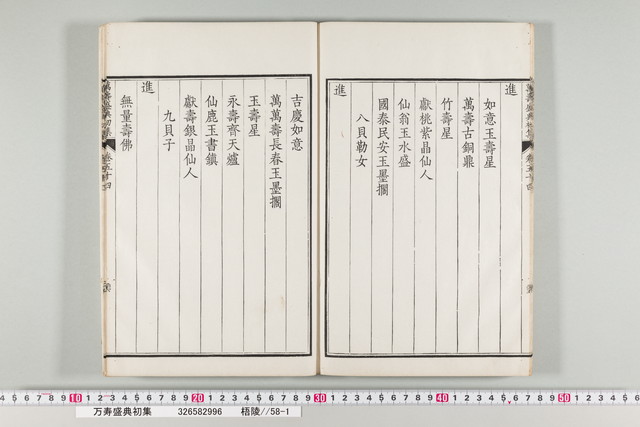 進
如意玉壽星
萬壽古銅鼎
竹壽星
獻桃紫晶仙人
仙翁玉水盛
國泰民安玉墨擱
八貝勒女
進
吉慶如意
萬萬壽長春玉墨擱
玉壽星
永壽齊天爐
仙鹿玉書鎮
獻壽銀晶仙人
九貝子
進
無量壽佛
萬壽盛典初集
卷五十四
10
20
30
40
50
万寿盛典初集 326582996 梧陵//58-1